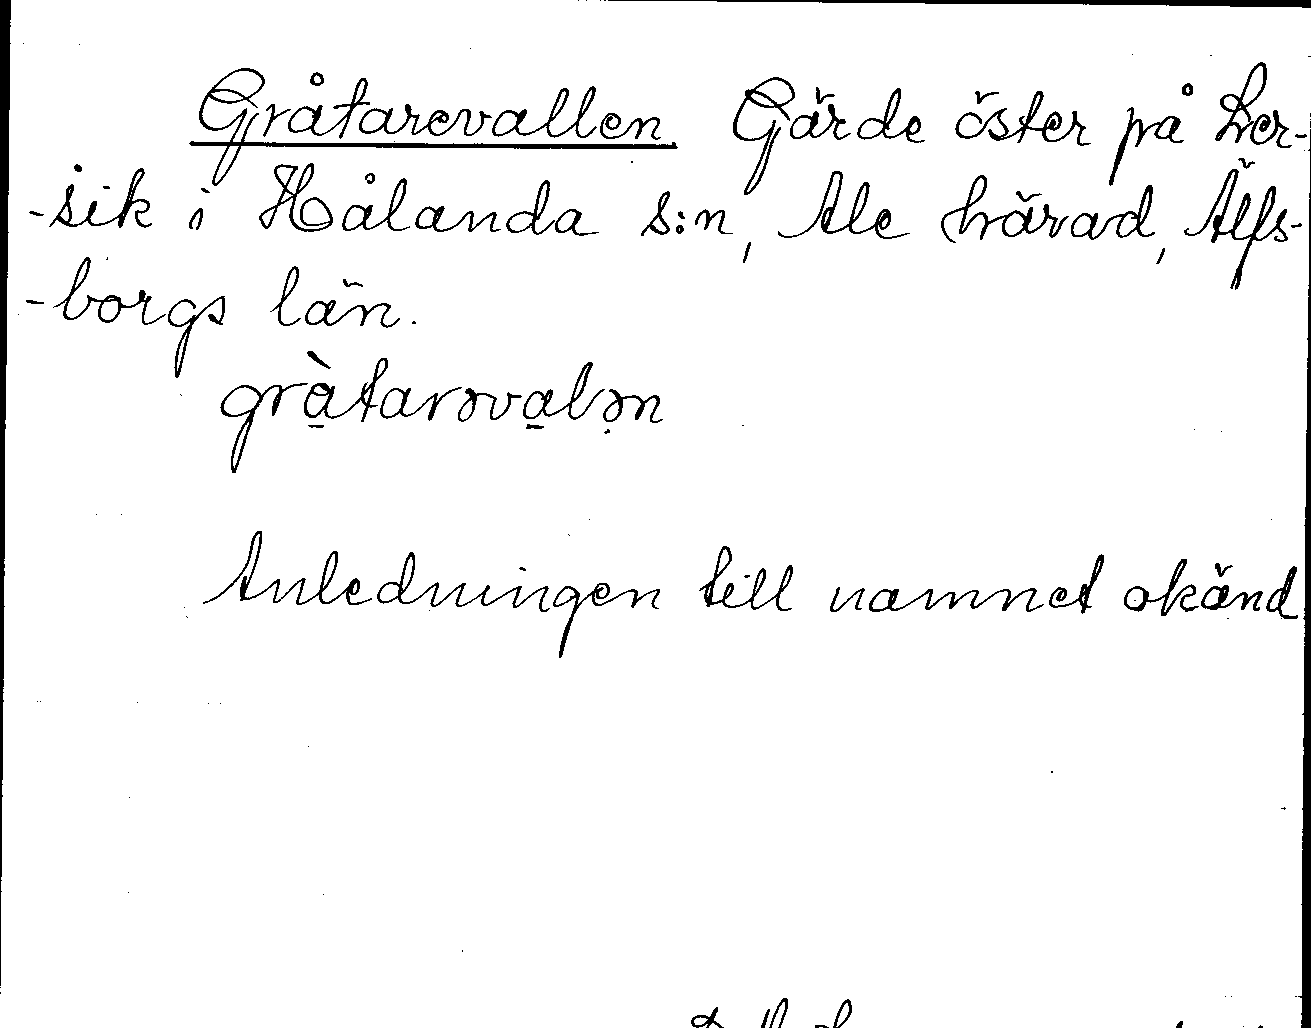 Gråtarevallen Gärde öster på Ler-
-sik i Hålanda s:n, Ale härad, Älfs-
-borgs län.
grà̠tarəva̠lən
Anledningen till namnet okänd